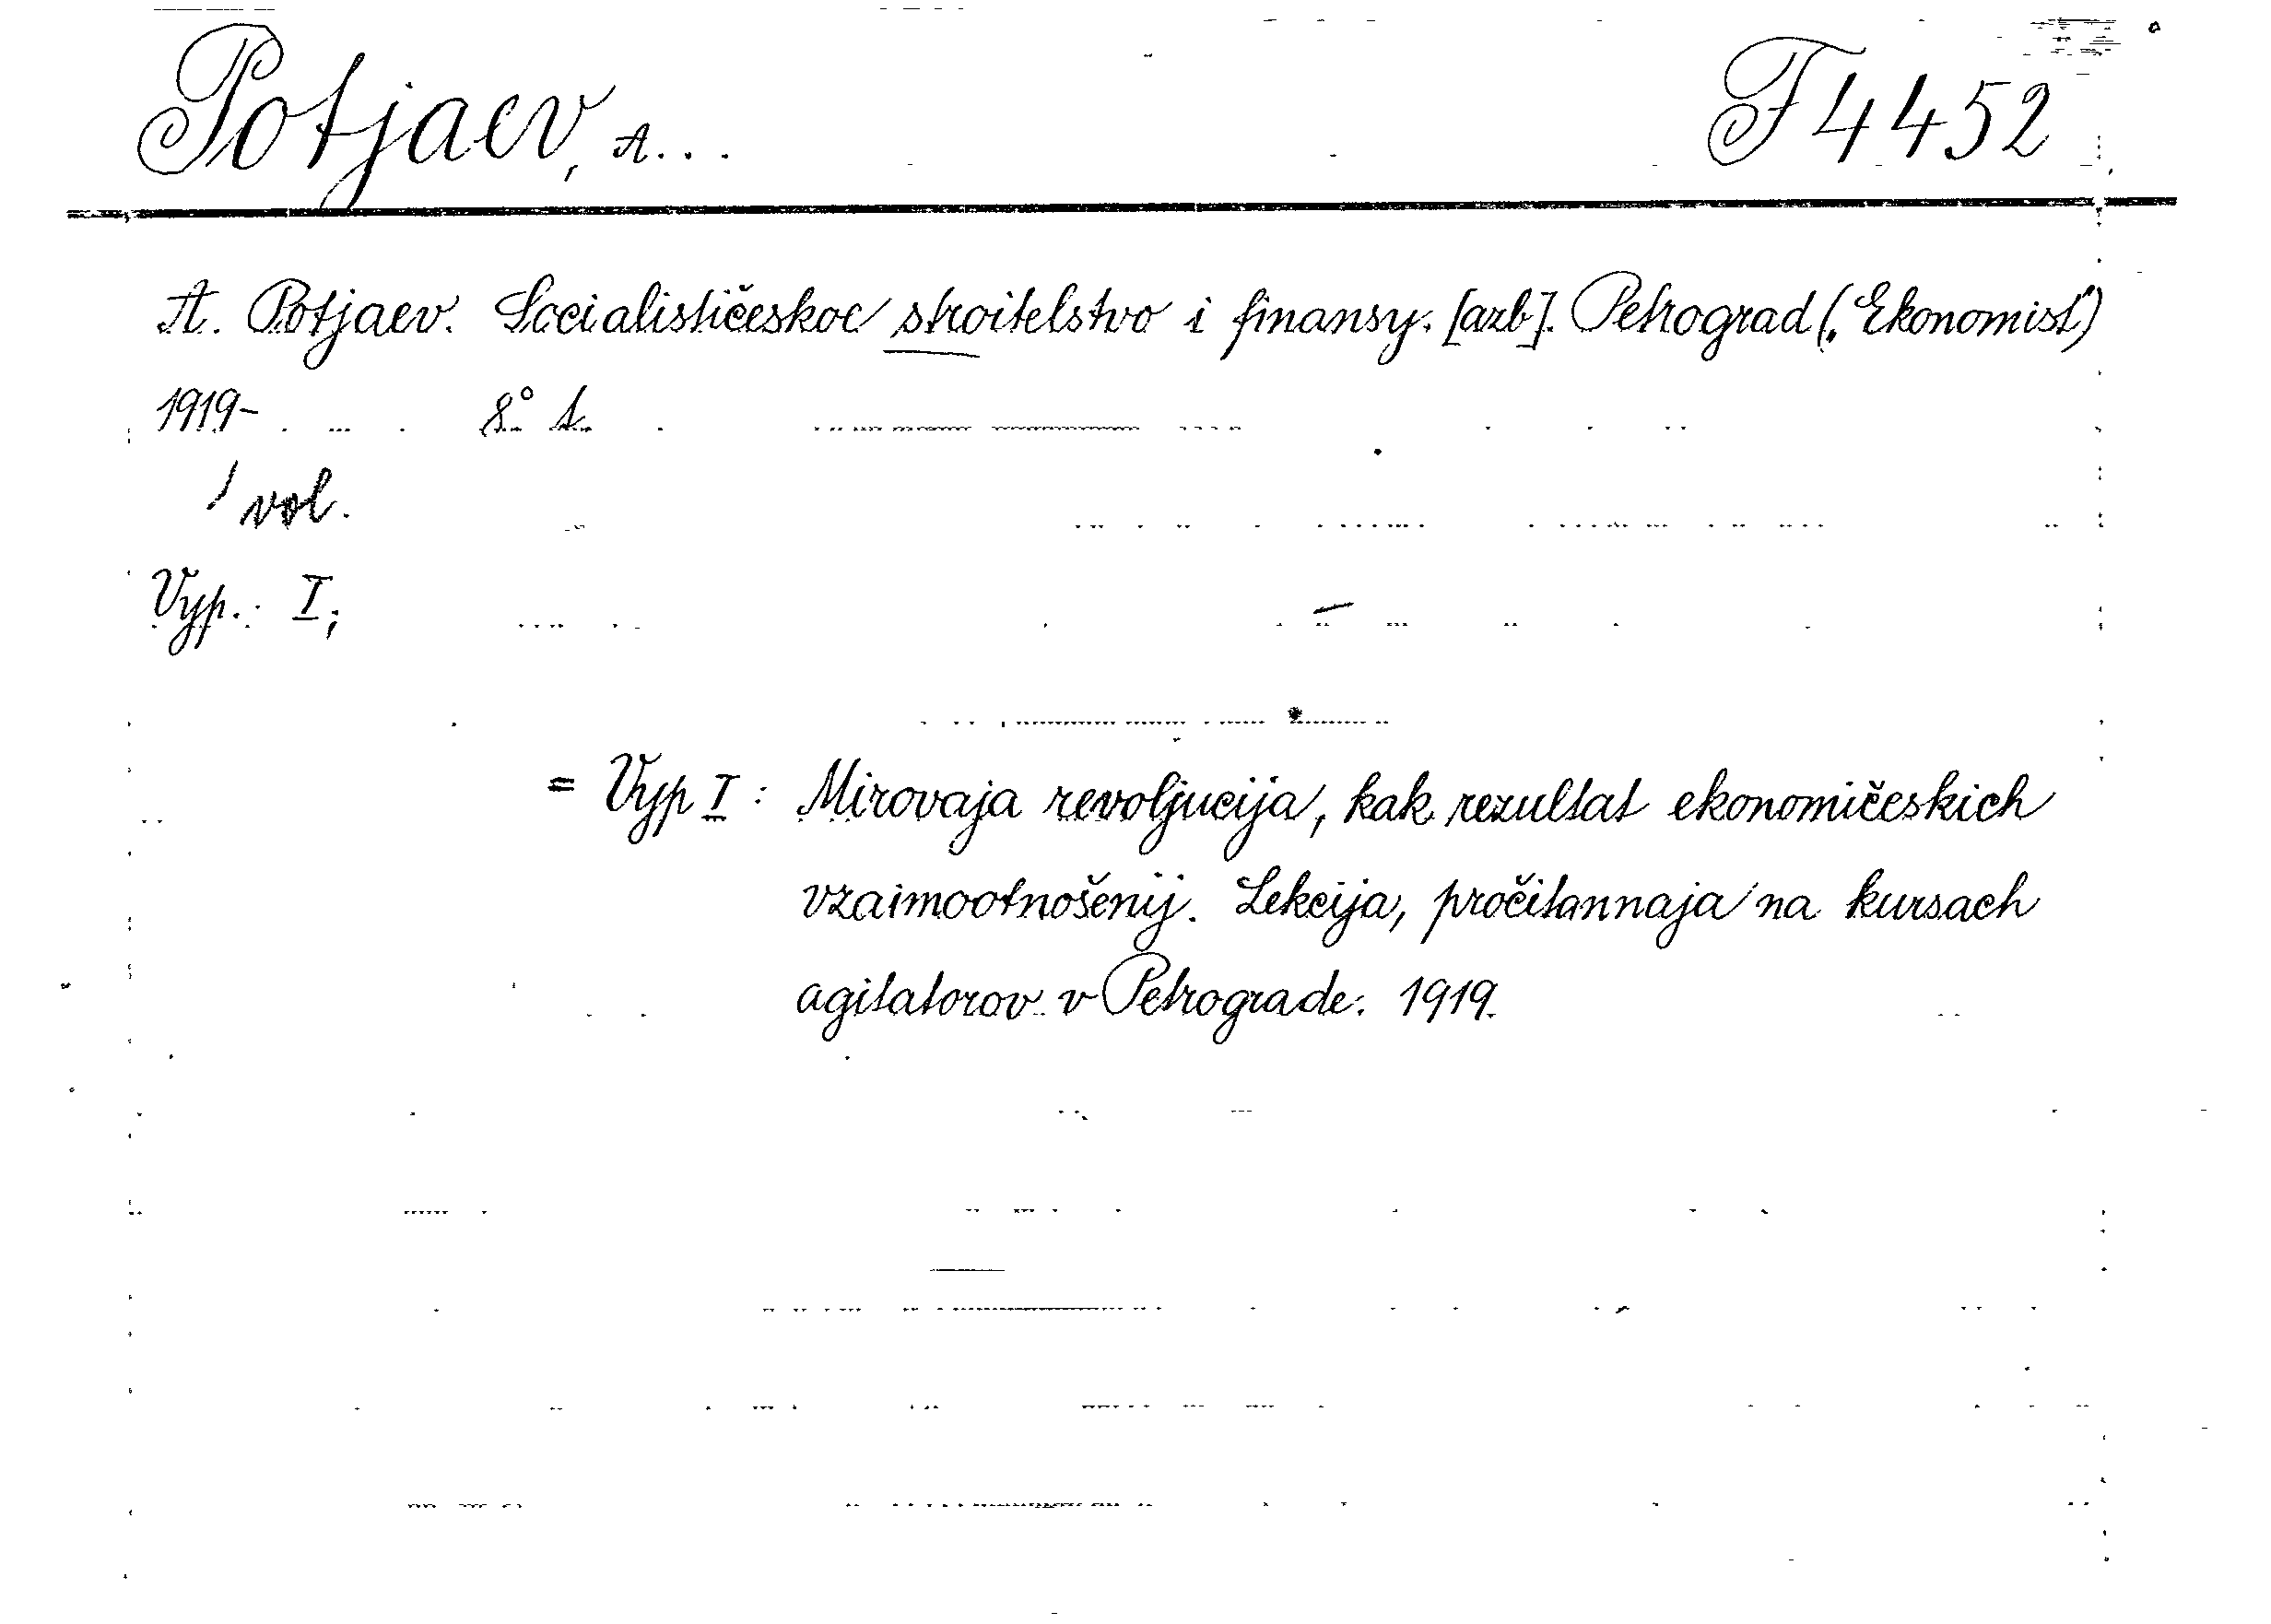 Potjaev, A... F 4452
A. Potjaev. Socialističeskoe stroitelstvo i finansy. [azb]. Petrograd („Ekonomist")
1919- 8° t.
1 vol.
Vyp.: I;
= Vyp I: Mirovaja revoljucija, kak rezultat ekonomičeskich
vzaimootnošenij. Lekcija, pročitannaja na kursach
agitatorov v Petrograde. 1919.